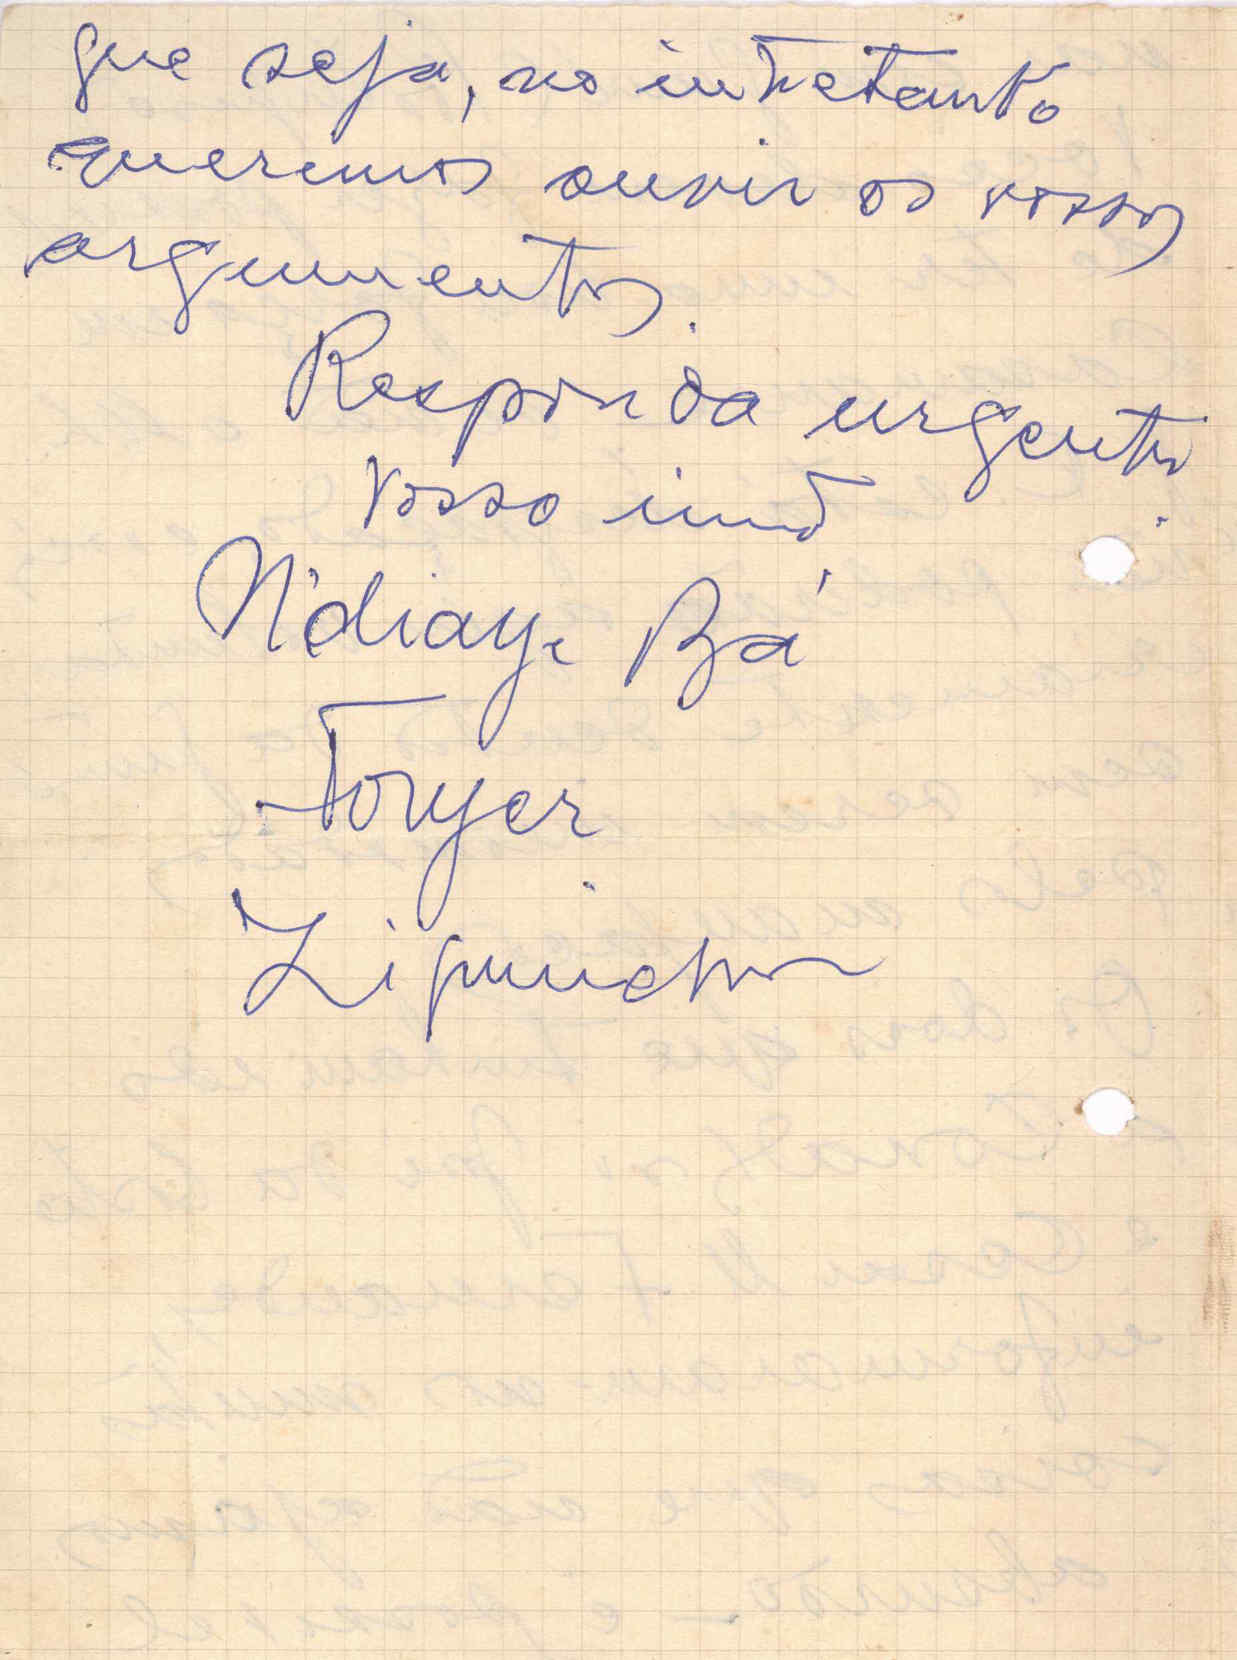 que seja, no intretanto
queremos ouvir os vossos
argumentos.
Responda urgente.
Vosso irmão
N'diaye Bá
Foyer
Ziguinchor